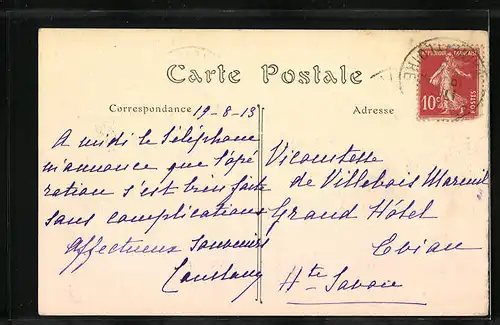 Carte Postale
Correspondance
19-8-13
A midi le Téléphone
m'annonce que l'opé
ration s'est bien faite
sans complications
Affectueux souvenirs
Adresse
Vicomtesse
de Villebois Mareuil
Grand Hôtel
Evian
Hte Savoie
10c
POSTES